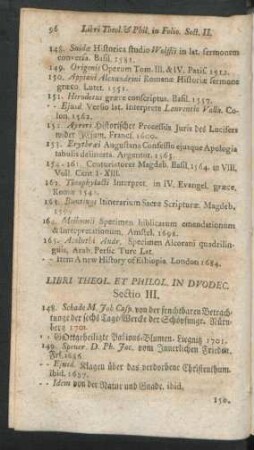 96 Libri Theol. & Phil. in Folio. Sect. II.
148. Suidæ Historica studio Wolffii in lat. sermonem
conversa. Basil. 1581.
149. Origenis Operum Tom. III. & IV. Paris. 1512.
150. Appiani Alexandrini Romanæ Historiæ sermone
græco. Lutet. 1551.
151. Herodotus græce conscriptus. Basil. 1557.
- - Ejusd. Versio lat. Interprete Laurentio Valla. Colon. 1562.
152. Ayreri Historischer Processus Juris des Lucifers
wider Francf. 1600.
153. Erythræi Augustana Confessio ejusque Apologia
tabulis delineata. Argentor. 1565.
154-161. Centuriatores Magdeb. Basil. 1564. in VIII.
Voll. Cent. I-XIII.
162. Theophylacti Interpret. in IV. Evangel. græce,
Romæ 1542.
163. Buntings Itinerarium Sacræ Scripturæ. Magdeb.
164. Meibomii Specimen biblicarum emendationum
& interpretationum. Amstel. 1698.
165. Acoluthi Andr. Specimen Alcorani quadrilinguis, Arab. Persic. Turc. Lat.
- - Item A new History of Ethiopia. London 1684.
LIBRI THEOL. ET PHILOL. IN DVODEC.
Sectio III.
148. Schade M. Joh. Casp. von der fruchtbaren Betrachtunge der sechs Tage-Wercke der Schöpfunge. Nürnberg 1701.
- - Gottgeheiligte Passions-Blumen. Liegnitz 1701.
149. Spener. D. Ph. Jac. vom Innerlichen Frieden.
Frf. 1686.
- - Ejusd. Klagen über das verdorbene Christenthum.
ibid. 1687.
- - Idem von der Natur und Gnade. ibid.
150.